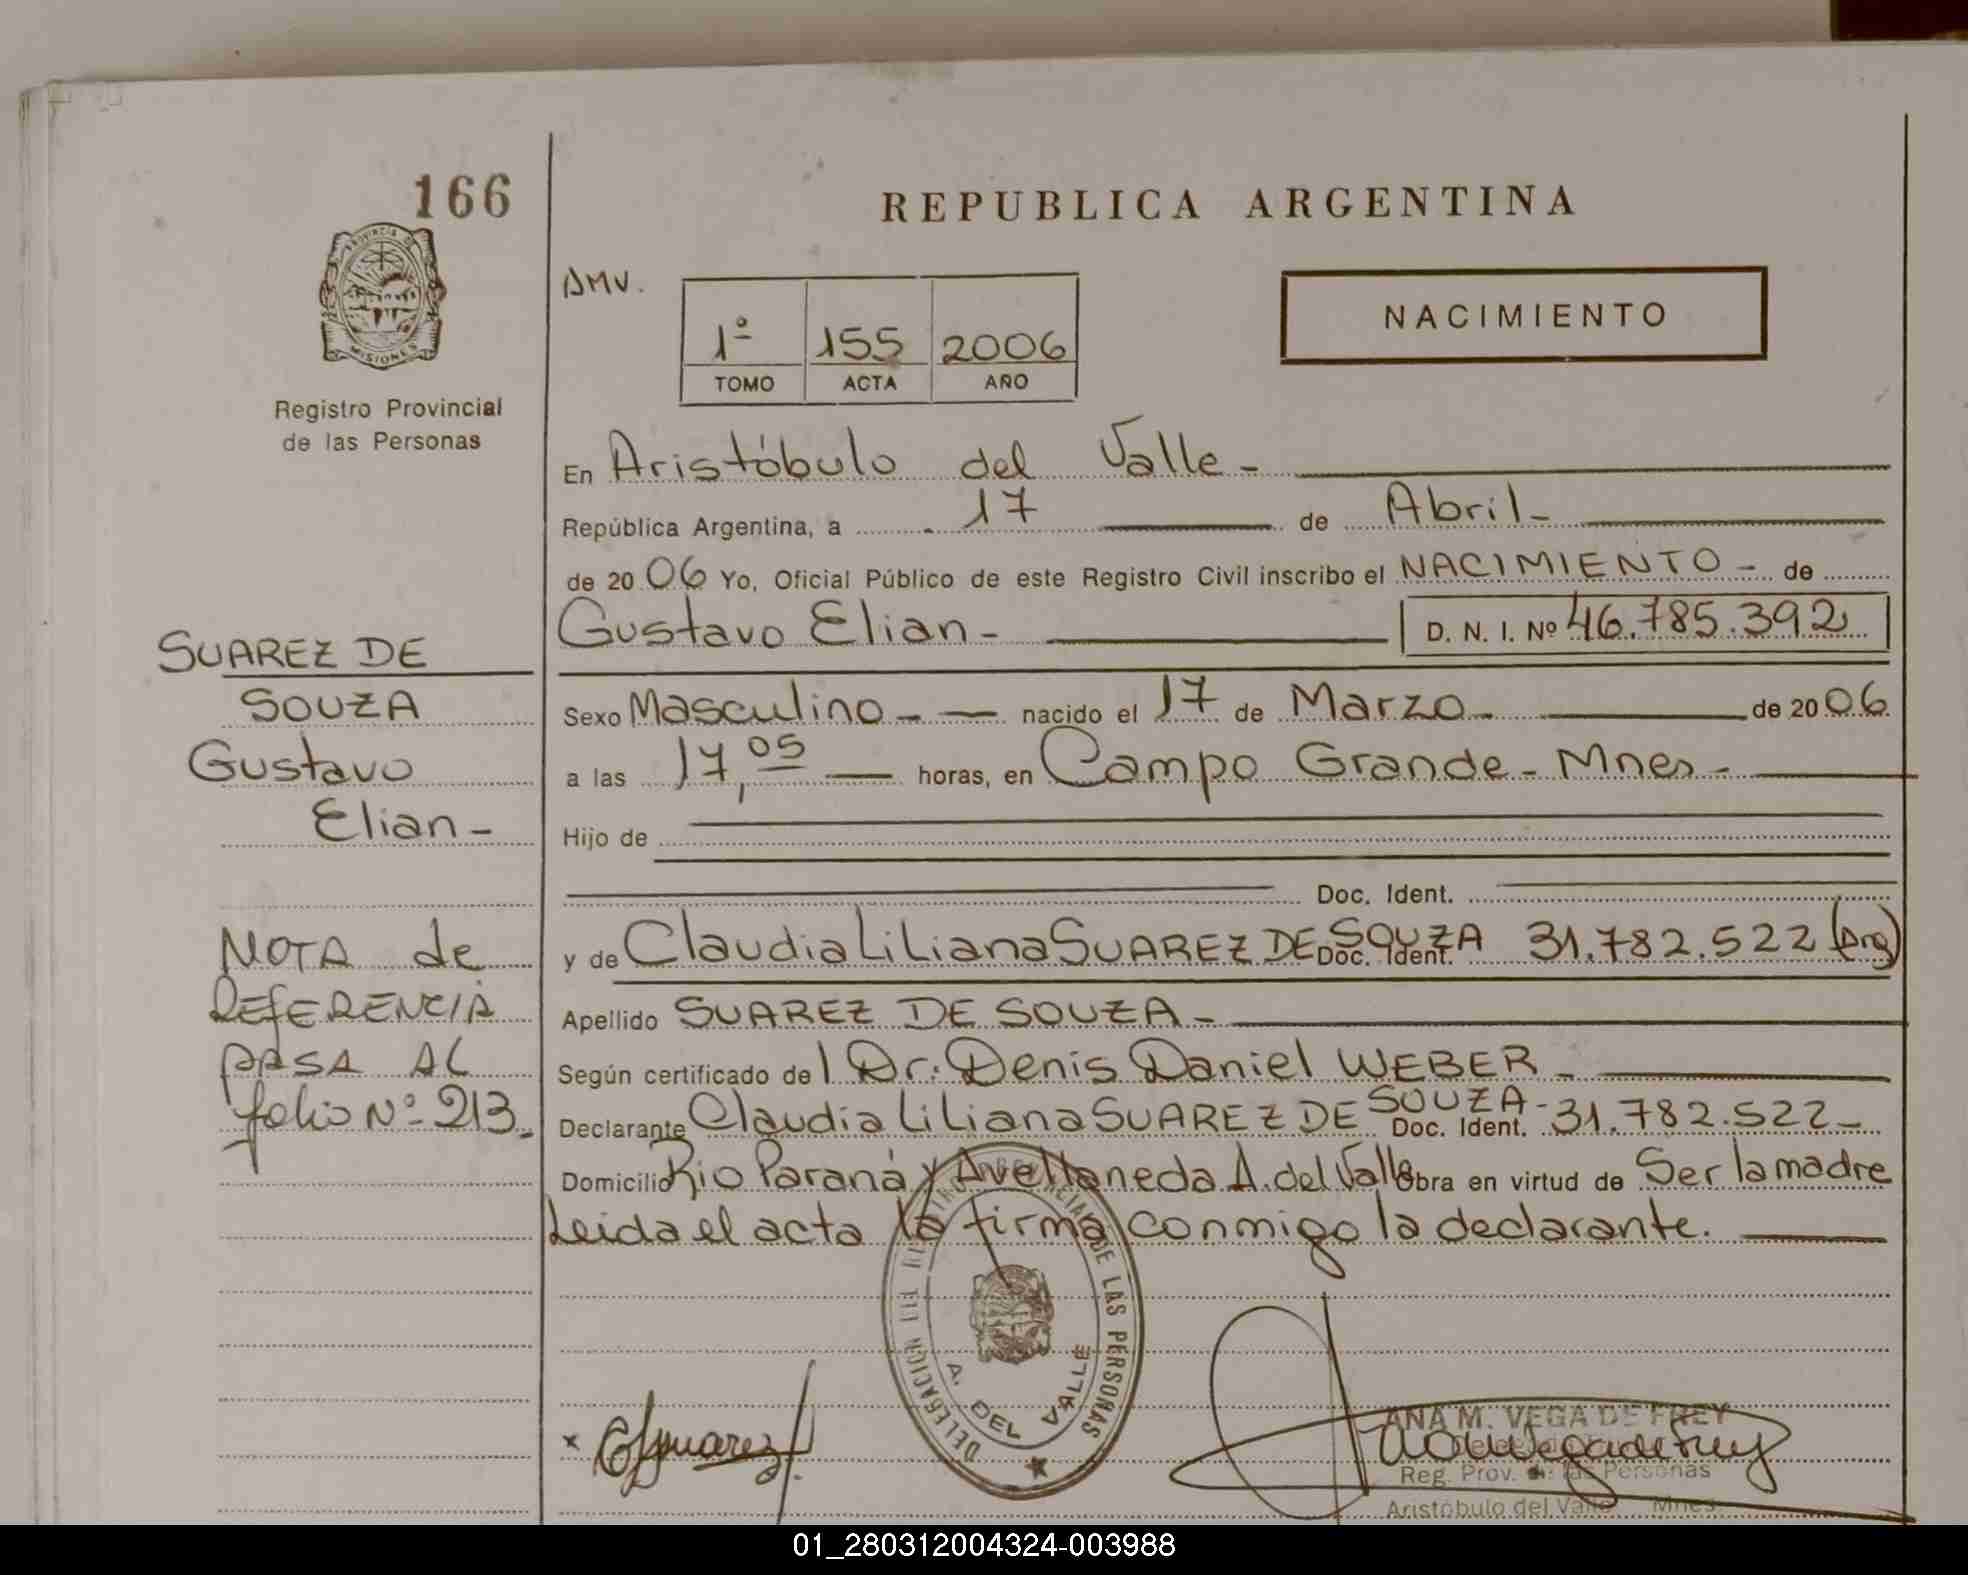 166
REPUBLICA ARGENTINA
PROVINCIA DE
MISIONES
Registro Provincial
de las Personas
AMV.
1º 155 2006
TOMO ACTA AÑO
NACIMIENTO
En Aristóbulo del Valle -
República Argentina, a 17 de Abril -
de 20 06 Yo, Oficial Público de este Registro Civil inscribo el NACIMIENTO - de
Gustavo Elian - D. N. I. Nº 46.785.392
SUAREZ DE
SOUZA
Gustavo
Elian -
Sexo Masculino - nacido el 17 de Marzo - de 20 06
a las 17,05 horas, en Campo Grande - Mnes -
Hijo de
Doc. Ident.
NOTA de
REFERENCIA
PASA AL
folio Nº 213.
y de Claudia Liliana SUAREZ DE SOUZA Doc. Ident. 31.782.522 (Arg)
Apellido SUAREZ DE SOUZA -
Según certificado de l Dr. Denis Daniel WEBER -
Declarante Claudia Liliana SUAREZ DE SOUZA - Doc. Ident. 31.782.522 -
Domicilio Rio Paraná y Avellaneda A. del Valle Obra en virtud de Ser la madre
Leida el acta la firma conmigo la declarante.
DELEGACION DEL REGISTRO PROVINCIAL DE LAS PERSONAS
A. DEL VALLE
x
ANA M. VEGA DE FREY
Reg. Prov. de las Personas
Aristóbulo del Valle Mnes.
01_280312004324-003988